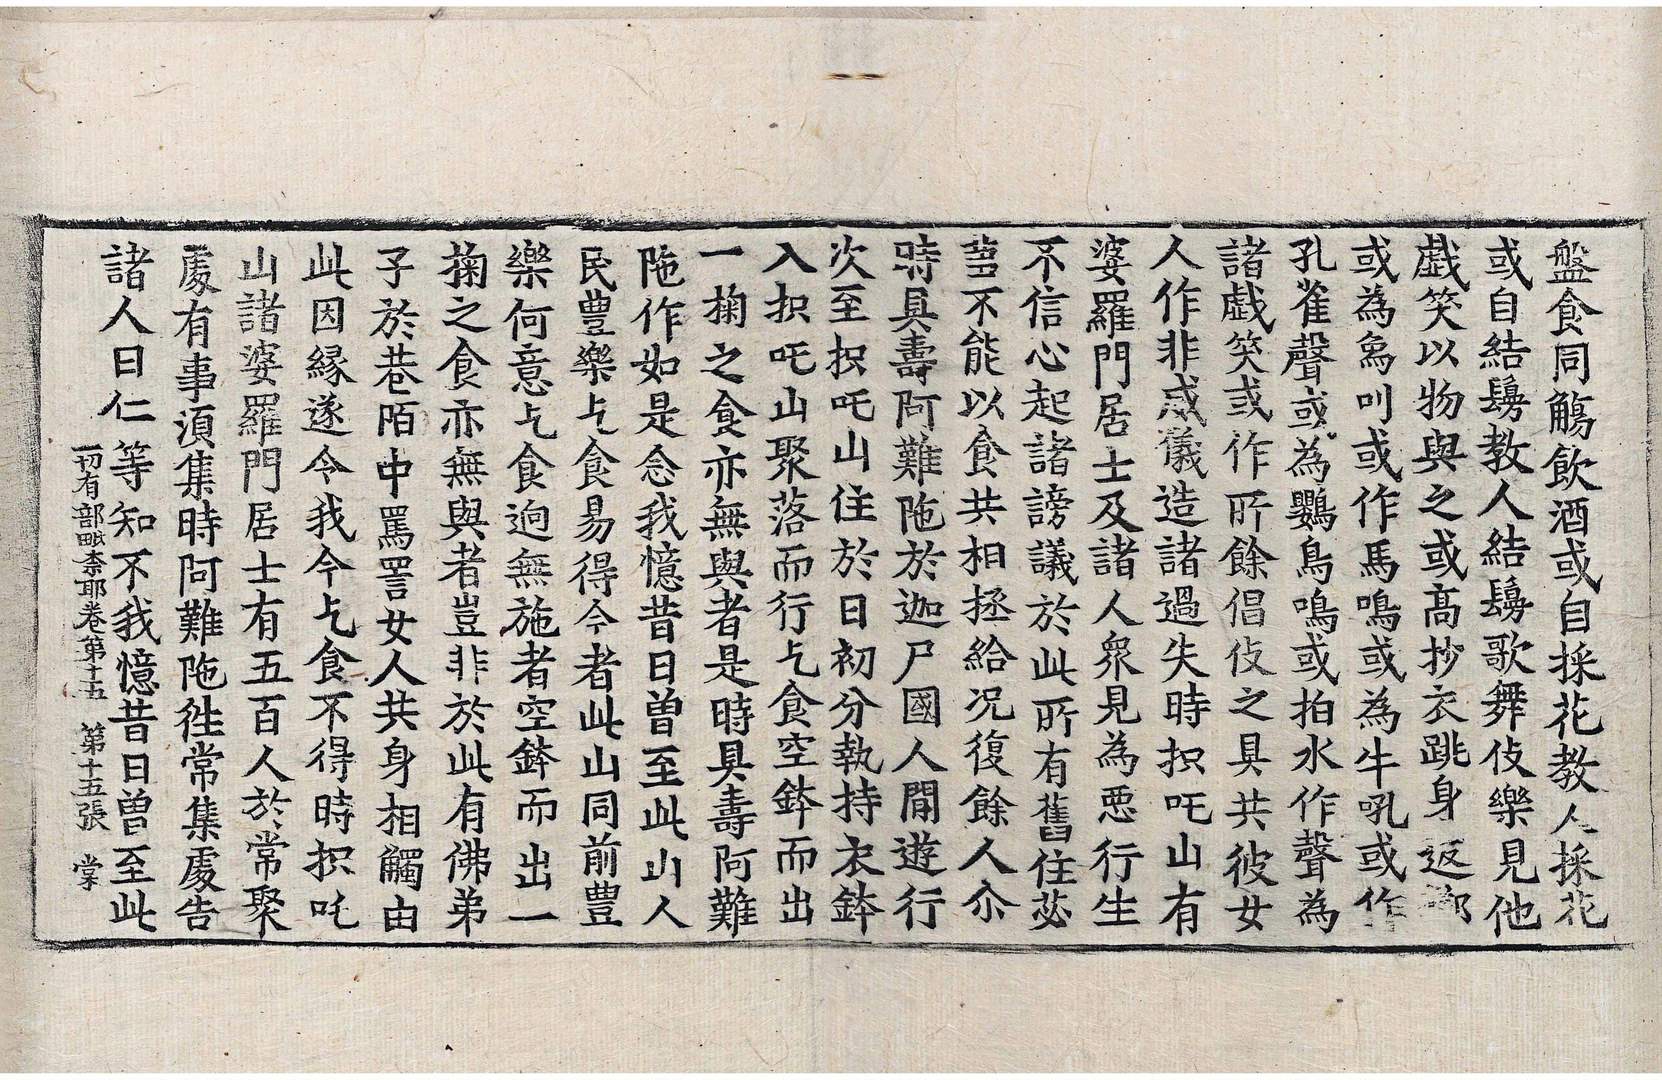 盤食同觴飲酒或自採花教人採花
或自結鬘教人結鬘歌舞伎樂見他
戯笑以物與之或高抄衣跳身返
或為象叫或作馬鳴或為牛吼或作
孔雀聲或為鸚鳥鳴或拍水作聲為
諸戯笑或作所餘倡伎之具共彼女
人作非威儀造諸過失時抧吒山有
婆羅門居士及諸人衆見為悪行生
不信心起諸謗議於此所有舊住苾
蒭不能以食共相拯給况復餘人尒
時具壽阿難陁於迦尸國人閒遊行
次至抧吒山住於日初分執持衣鉢
入抧吒山聚落而行乞食空鉢而出
一掬之食亦無與者是時具壽阿難
陁作如是念我憶昔日曽至此山人
民豊樂乞食易得今者此山同前豊
樂何意乞食逈無施者空鉢而出一
掬之食亦無與者豈非於此有佛弟
子於巷陌中罵詈女人共身相觸由
此因縁遂令我今乞食不得時抧吒
山諸婆羅門居士有五百人於常聚
處有事湏集時阿難陁徃常集處告
諸人曰仁等知不我憶昔日曽至此
一切有部毗柰耶卷第十五 第十五張 棠